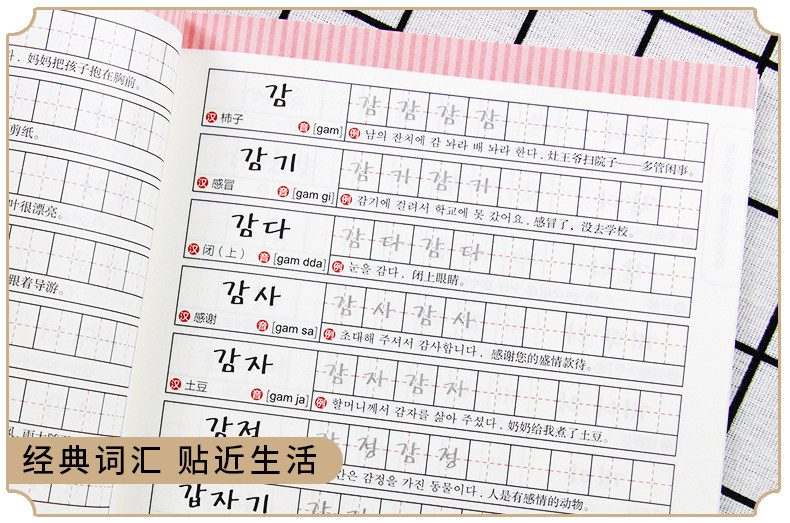 妈妈把孩子抱在胸前。
剪纸。
叶很漂亮。
跟着导游。
감 감 감 감 감
汉 柿子 音 [gam] 例 남의 잔치에 감 놔라 배 놔라 한다. 灶王爷扫院子——多管闲事。
감기 감 기 감 기
汉 感冒 音 [gam gi] 例 감기에 걸려서 학교에 못 갔어요. 感冒了，没去学校。
감다 감 다 감 다
汉 闭（上） 音 [gam dda] 例 눈을 감다. 闭上眼睛。
감사 감 사 감 사
汉 感谢 音 [gam sa] 例 초대해 주셔서 감사합니다. 感谢您的盛情款待。
감자 감 자 감 자
汉 土豆 音 [gam ja] 例 할머니께서 감자를 삶아 주셨다. 奶奶给我煮了土豆。
감정 감 정 감 정
은 감정을 가진 동물이다. 人是有感情的动物。
갑자기
经典词汇 贴近生活